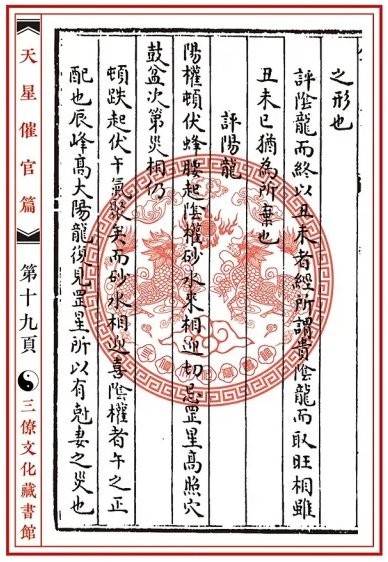 之形也
評陰龍而終以丑未者經所謂貴陰龍而取旺相雖
丑未巳猶為所棄也
評陽龍
陽權頓伏蜂腰起陰權砂水來相迎切忌罡星高照穴
鼓盆次第災相仍
頓跌起伏午氣聚矣而砂水相迎喜陰權者午之正
配也辰峰高大陽龍復見罡星所以有尅妻之災也
【天星催官篇】
第十九頁
三僚文化藏書館